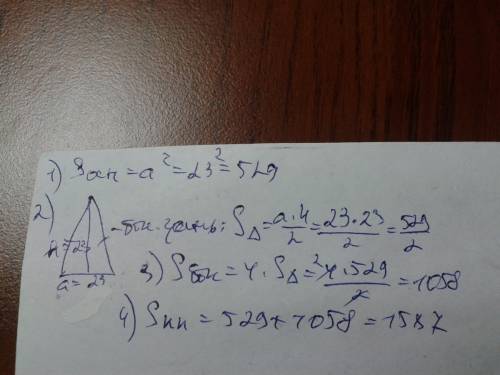 1) Sосн = a² = 23² = 529
2) h = 23 a = 23 - бічн. грань: S△ = a·h/2 = 23·23/2 = 529/2
3) Sбіч = 4·S△ = ²4·529/2 = 1058
4) Sпп = 529 + 1058 = 1587